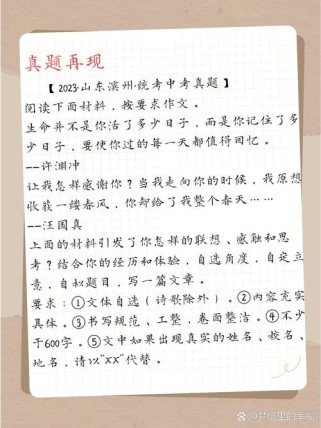 真题再现
【2023·山东滨州·统考中考真题】
阅读下面材料，按要求作文。
生命并不是你活了多少日子，而是你记住了多
少日子，要使你过的每一天都值得回忆。
--许渊冲
让我怎样感谢你？当我走向你的时候，我原想
收获一缕春风，你却给了我整个春天……
--汪国真
上面的材料引发了你怎样的联想、感触和思
考？结合你的经历和体验，自选角度，自定立
意，自拟题目，写一篇文章。
要求：①文体自选（诗歌除外）。②内容充实
具体。③书写规范、工整，卷面整洁。④不少
于600字。⑤文中如果出现真实的姓名、校名、
地名，请以"XX"代替。